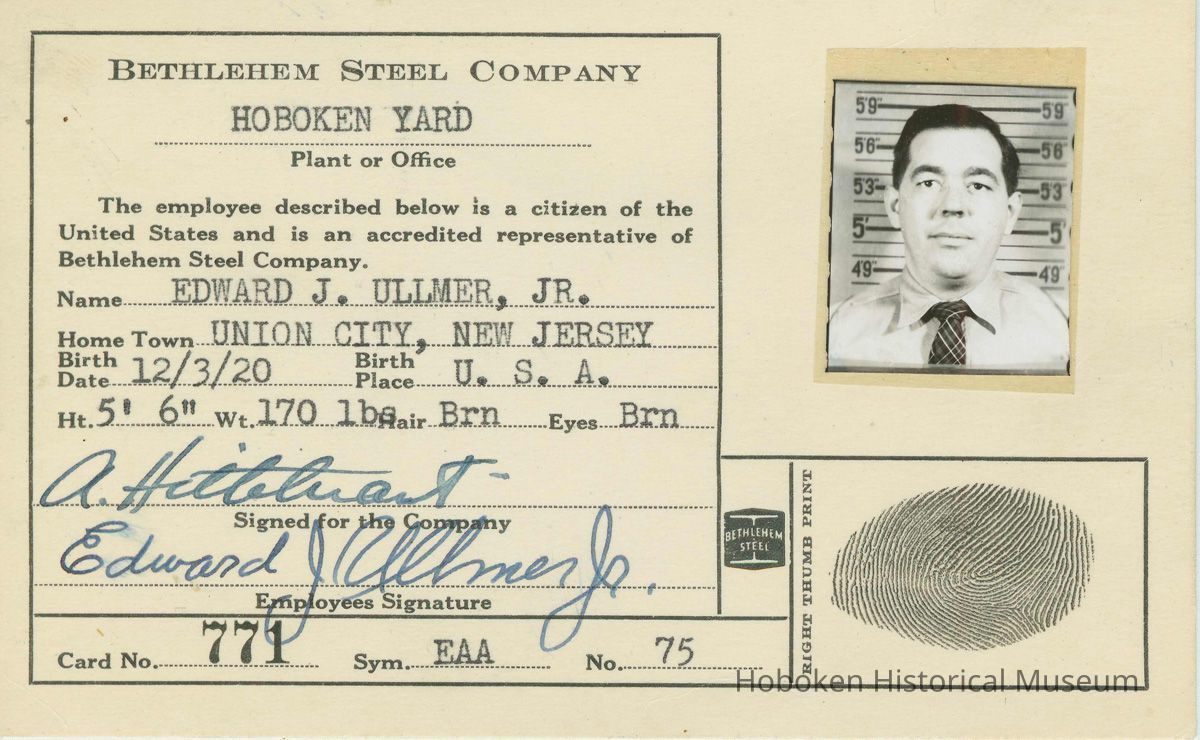 BETHLEHEM STEEL COMPANY
HOBOKEN YARD
Plant or Office
The employee described below is a citizen of the
United States and is an accredited representative of
Bethlehem Steel Company.
Name EDWARD J. ULLMER, JR.
Home Town UNION CITY, NEW JERSEY
Birth Date 12/3/20 Birth Place U. S. A.
Ht. 5' 6" Wt. 170 lbs Hair Brn Eyes Brn
A.
Signed for the Company
Edward J Ullmer Jr.
Employees Signature
Card No. 771 Sym. EAA No. 75
5'9" 5'9
5'6" 5'6"
5'3" 5'3
5' 5'
4'9" 4'9"
BETHLEHEM
STEEL
RIGHT THUMB PRINT
Hoboken Historical Museum